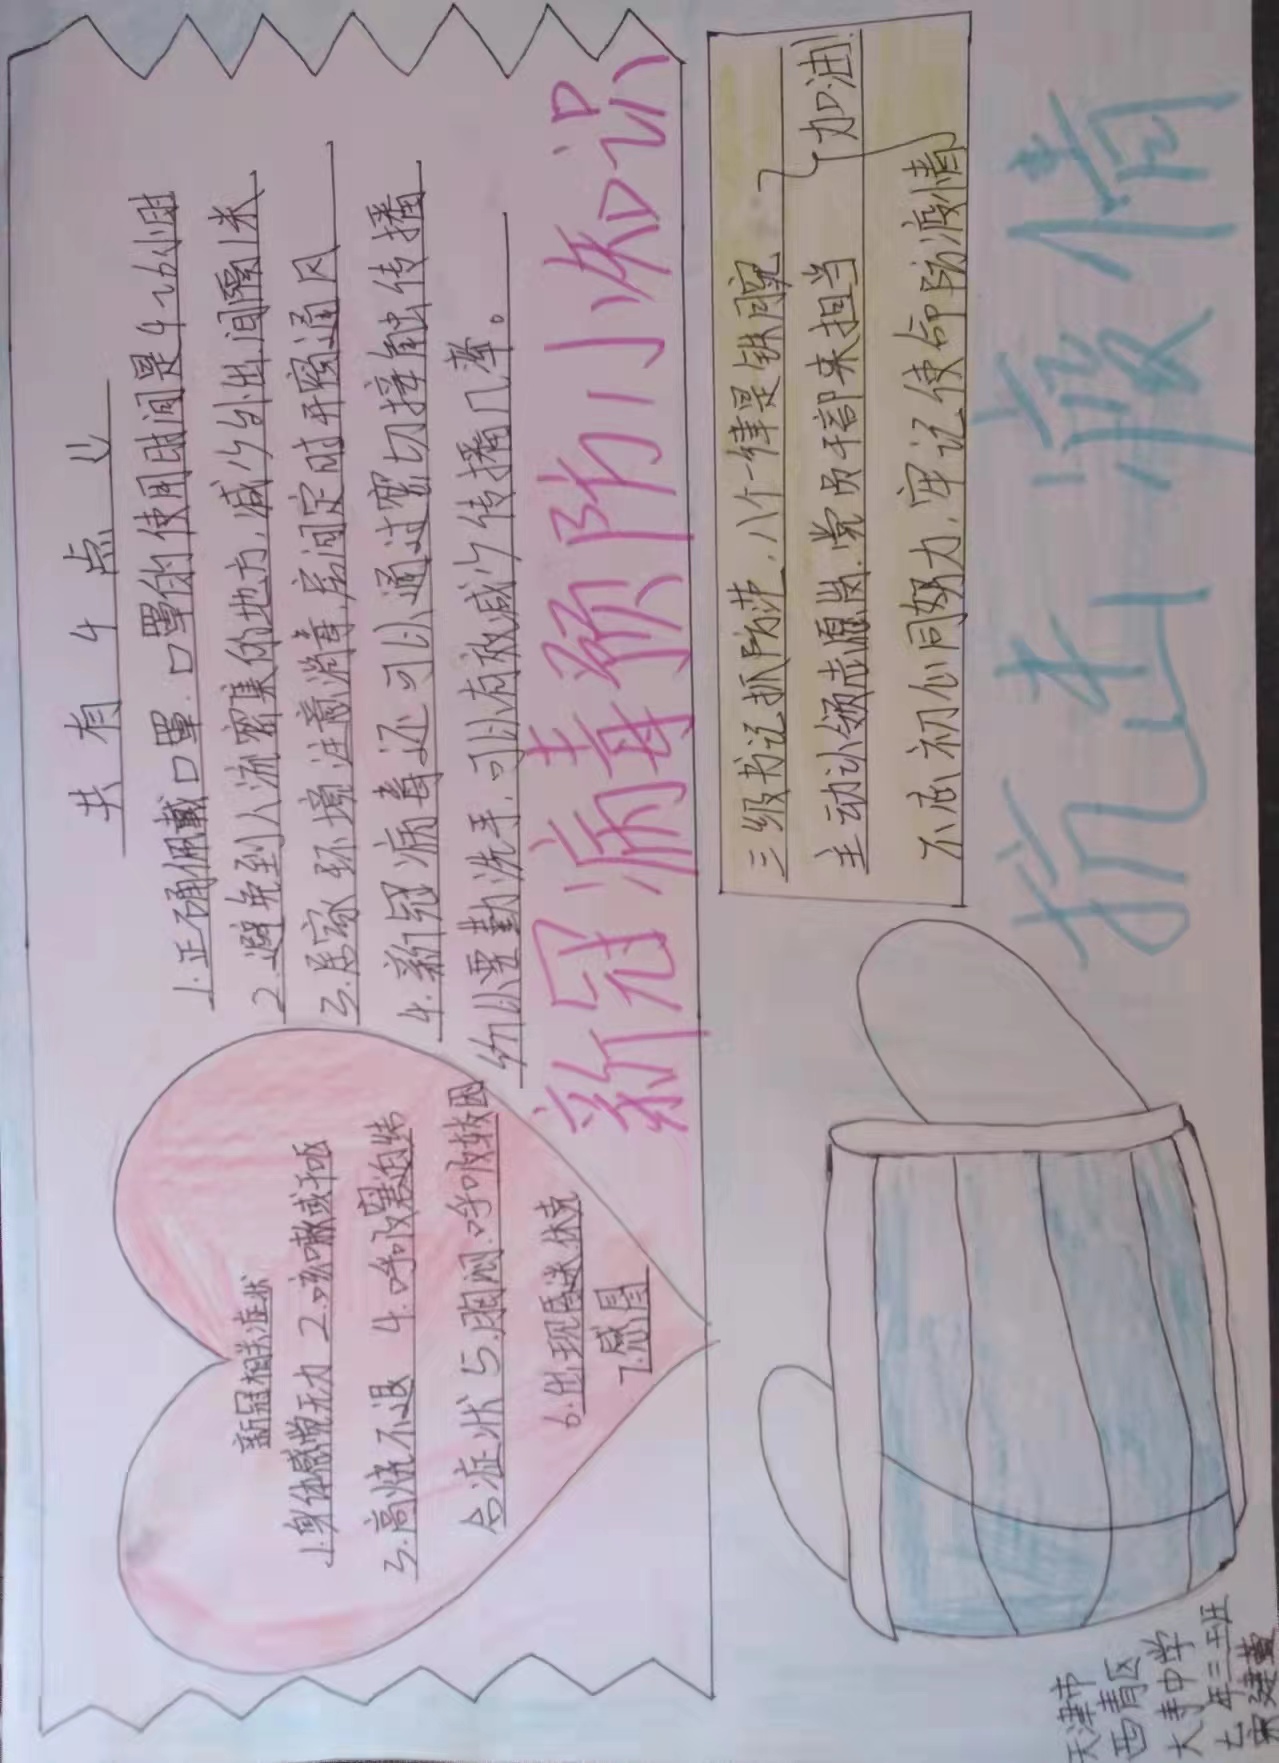 共有4点
1.正确佩戴口罩.口罩的使用时间是4~6小时
2.避免到人流密集的地方,减少外出,间隔1米
3.居家环境注意消毒,房间定时开窗通风
4.新冠病毒还可以通过密切接触传播
所以要勤洗手,可以有效减少传播几率。
新冠病毒预防小知识
新冠相关症状
1.身体感觉无力 2.咳嗽或干呕
3.高烧不退 4.呼吸窘迫综
合症状 5.胸闷.呼吸较困
6.出现昏迷.休克
7.感冒
三级书记抓防范.八个一律是铁腕
主动认领志愿岗.党员干部来担当
不忘初心同努力.牢记使命防疫情
加油!
抗击疫情
天津市
西青区
大寺中学
七年三班